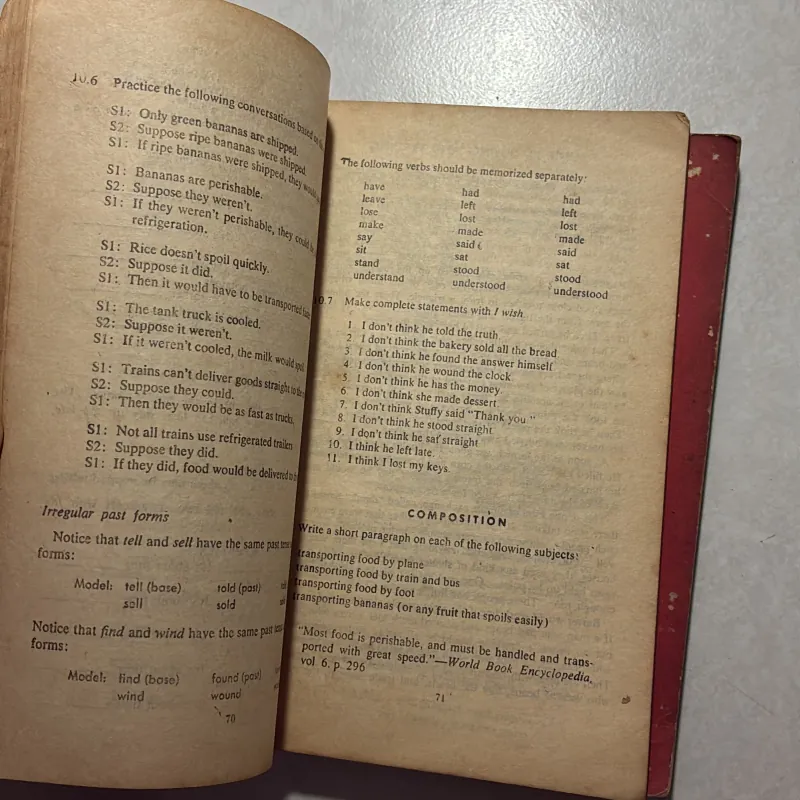 10.6 Practice the following conversations based on
S1: Only green bananas are shipped.
S2: Suppose ripe bananas were shipped
S1: If ripe bananas were shipped, they would
S1: Bananas are perishable.
S2: Suppose they weren't.
S1: If they weren't perishable, they could be
refrigeration.
S1: Rice doesn't spoil quickly.
S2: Suppose it did.
S1: Then it would have to be transported
S1: The tank truck is cooled.
S2: Suppose it weren't.
S1: If it weren't cooled, the milk would spoil
S1: Trains can't deliver goods straight to
S2: Suppose they could.
S1: Then they would be as fast as trucks.
S1: Not all trains use refrigerated trailers
S2: Suppose they did.
S1: If they did, food would be delivered
Irregular past forms
Notice that tell and sell have the same past
forms:
Model: tell (base) told (past)
sell sold
Notice that find and wind have the same past
forms:
Model: find (base) found (past)
wind wound
70
The following verbs should be memorized separately:
have had had
leave left left
lose lost lost
make made made
say said said
sit sat sat
stand stood stood
understand understood understood
10.7 Make complete statements with I wish
1 I don't think he told the truth.
2 I don't think the bakery sold all the bread
3 I don't think he found the answer himself
4. I don't think he wound the clock
5. I don't think he has the money.
6 I don't think she made dessert.
7. I don't think Stuffy said "Thank you."
8 I don't think he stood straight
9. I don't think he sat straight
10. I think he left late.
11. I think I lost my keys.
COMPOSITION
Write a short paragraph on each of the following subjects:
transporting food by plane
transporting food by train and bus
transporting food by foot
transporting bananas (or any fruit that spoils easily)
"Most food is perishable, and must be handled and trans-
ported with great speed."—World Book Encyclopedia,
vol 6, p. 296
71